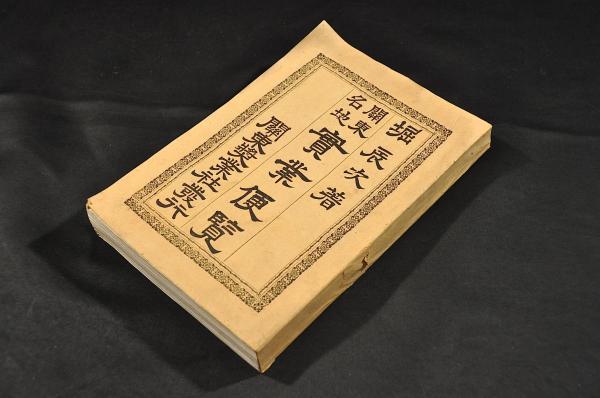 堀辰次著
關東名地實業便覧
關東奬業社發行